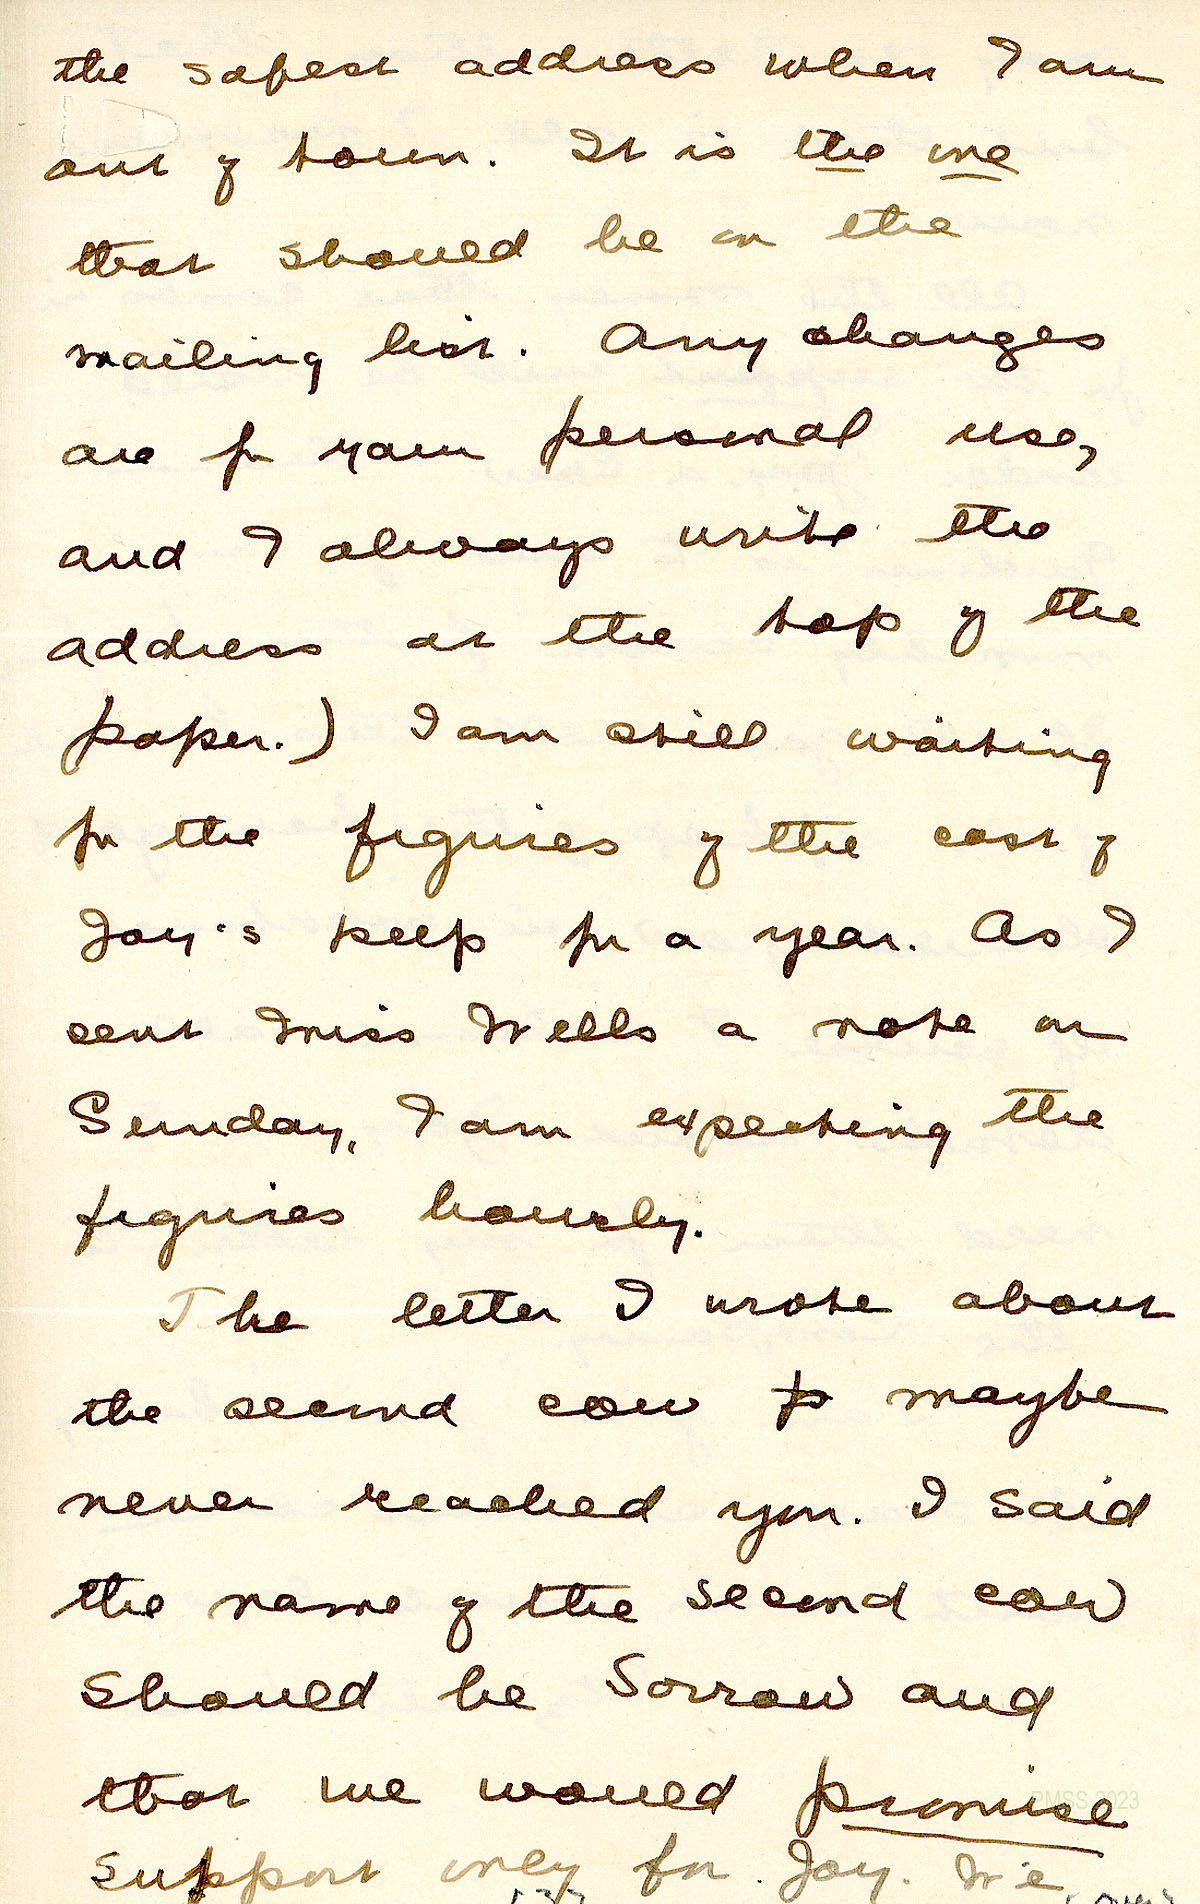 the safest address when I am
out of town. It is the one
that should be on the
mailing list. Any changes
are for your personal use,
and I always write the
address at the top of the
paper.) I am still waiting
for the figures of the cost of
Joy's keep for a year. As I
sent Miss Wells a note on
Sunday, I am expecting the
figures hourly.
The letter I wrote about
the second cow maybe
never reached you. I said
the name of the second cow
should be Sorrow and
that we would promise
PMSS 2023
support only for Joy. We